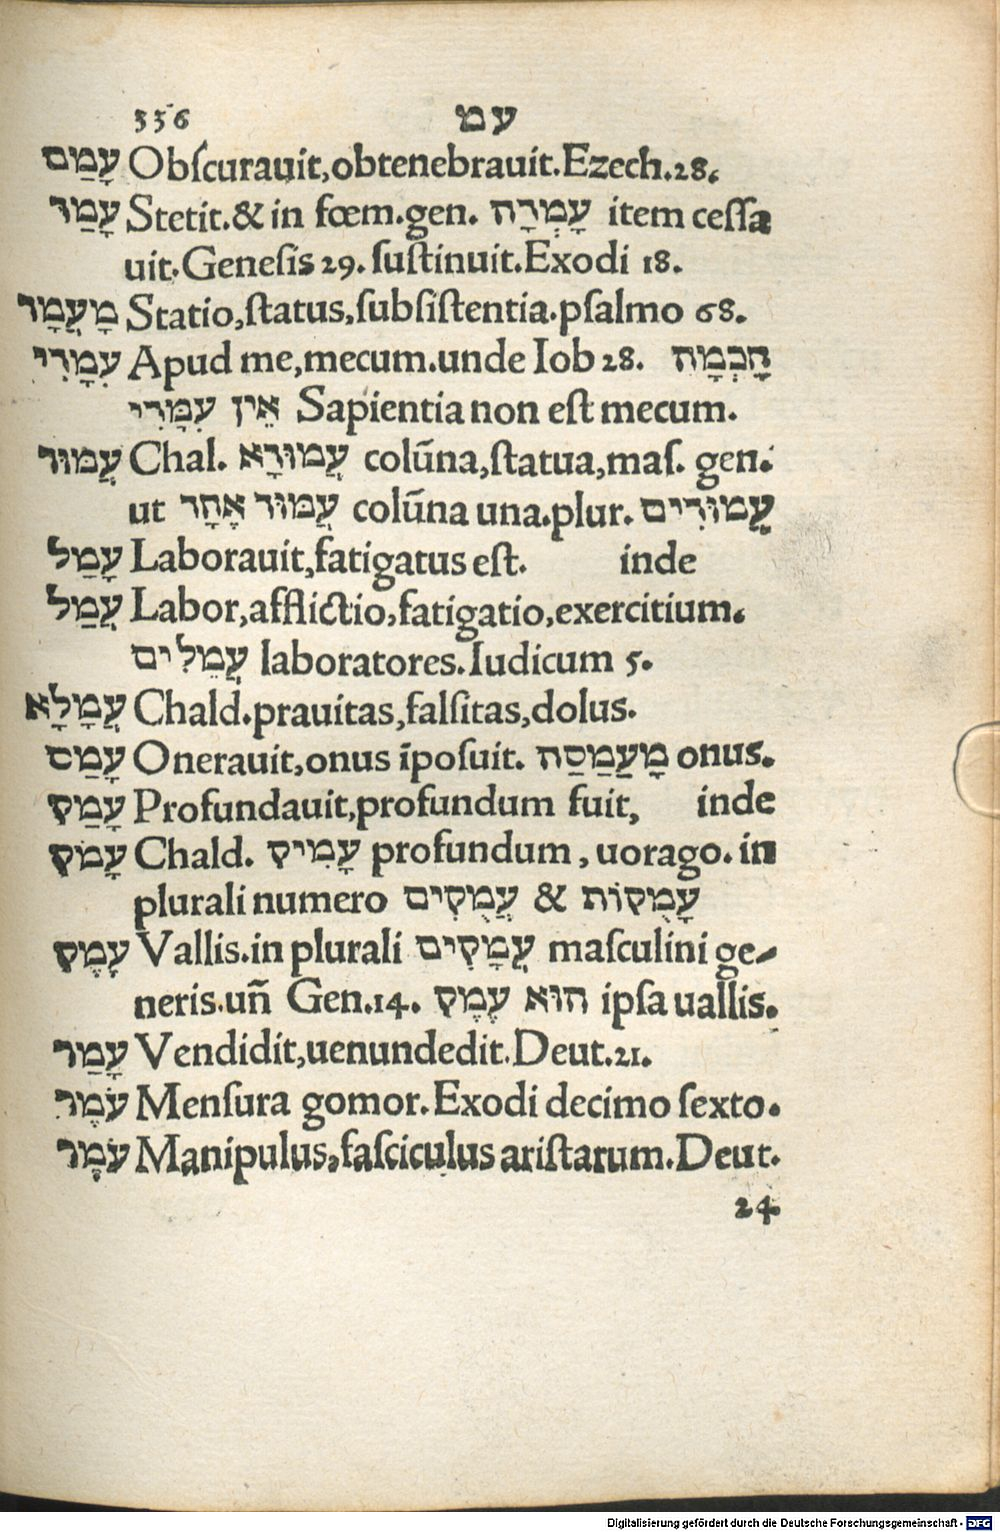 336 עמ
עָמַם Obſcurauit,obtenebrauit.Ezech.28.
עָמַד Stetit.& in fœm.gen. עָמְדָה item ceſſa
uit.Geneſis 29. ſuſtinuit.Exodi 18.
מָעֳמָד Statio,ſtatus,ſubſiſtentia.pſalmo 68.
עִמָּדִי Apud me,mecum.unde Iob 28. חָכְמָה
אֵין עִמָּדִי Sapientia non eſt mecum.
עֲמּוּד Chal. עֲמוּדָא colūna,ſtatua,maſ. gen.
ut עֲמּוּד אֶחָד colūna una.plur. עֲמוּדִים
עָמַל Laborauit,fatigatus eſt. inde
עֲמַל Labor,afflictio,fatigatio,exercitium.
עֲמֵלִים laboratores.Iudicum 5.
עֲמָלָא Chald.prauitas,falſitas,dolus.
עָמַס Onerauit,onus īpoſuit. מָעַמַסַה onus.
עָמַק Profundauit,profundum fuit, inde
עָמֹק Chald. עָמִיק profundum,uorago.in
plurali numero עֲמֻקִים & עָמֻקוֹת
עֶמֶק Vallis.in plurali עֲמָקִים maſculini ge-
neris.uñ Gen.14. הוּא עֶמֶק ipſa uallis.
עָמַר Vendidit,uenundedit.Deut.21.
עֹמֶר Menſura gomor.Exodi decimo ſexto.
עֹמֶר Manipulus,faſciculus ariſtarum.Deut.
24.
Digitalisierung gefördert durch die Deutsche Forschungsgemeinschaft - DFG